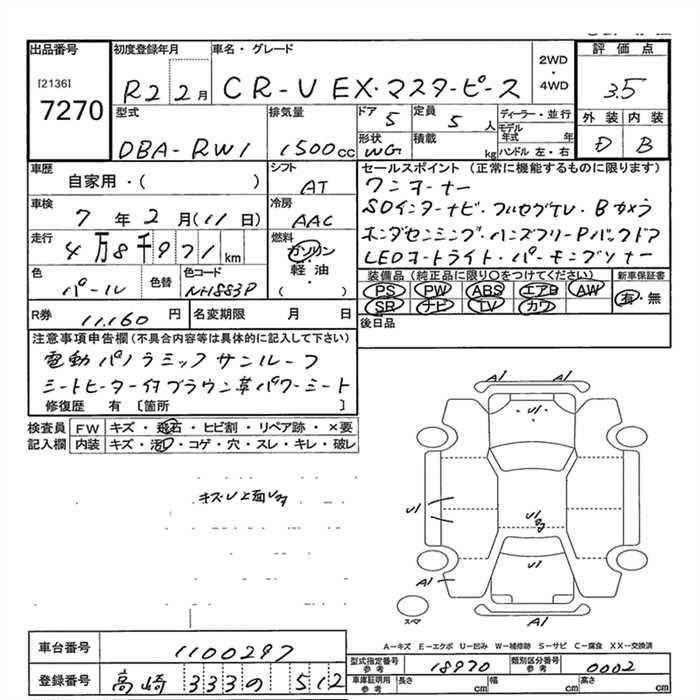 出品番号 初度登録年月 車名・グレード 2WD・4WD 評価点
[2136] 7270 R2 2月 CR-V EX・マスターピース 3.5
型式 排気量 ドア 5 定員 5人 ディーラー・並行 外装 内装
DBA-RW1 1500cc 形状 WG 積載 kg モデル年式 年 ハンドル 左・右 D B
車歴 自家用・( ) シフト AT セールスポイント (正常に機能するものに限ります)
ワンオーナー
車検 7年2月(11日) 冷房 AAC
SDインターナビ・フルセグTV・Bカメラ
走行 4万8千971km 燃料 ガソリン・軽油・( )
ホンダセンシング・ハンズフリーPバックドア
LEDオートライト・パーキングソナー
色 パール 色替 色コード NH883P
装備品 (純正品に限り○をつけてください) 新車保証書
PS PW ABS エアB AW 有・無
SR ナビ TV カワ
R券 11,160円 名変期限 月 日 後日品
注意事項申告欄(不具合内容等は具体的に記入して下さい)
電動パノラミックサンルーフ
シートヒーター付ブラウン革パワーシート
修復歴 有 [箇所 ]
検査員 FW キズ・飛石・ヒビ割・リペア跡・×要
記入欄 内装 キズ・汚レ・コゲ・穴・スレ・キレ・破レ
A1 A1
U1
U1
U1
U1
A1
A1
スマ
A-キズ E-エクボ U-凹み W-補修跡 S-サビ C-腐食 XX-交換済
車台番号 1100297 型式指定番号 参考 18970 類別区分番号 参考 0002
登録番号 高崎 333 の 512 車庫証明用 参考 長さ cm 幅 cm 高さ cm